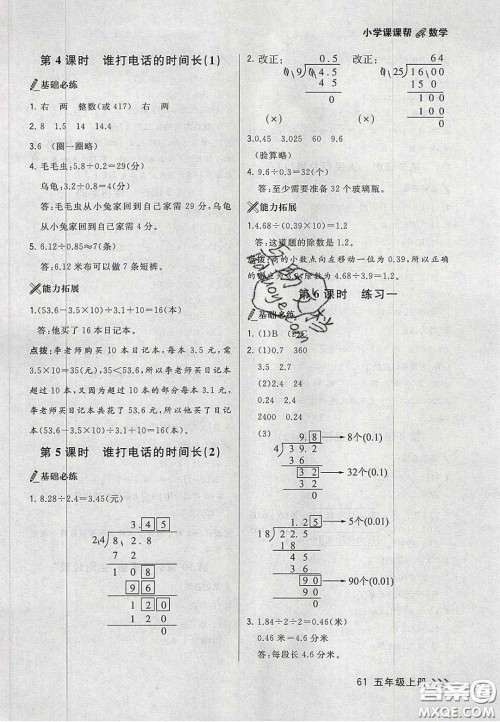 小学课课帮 数学
第4课时 谁打电话的时间长(1)
基础必练
1. 右 两 整数(或417) 右 两
2. 8 1.5 14 14.4
3.6 (圈一圈略)
4. 毛毛虫:5.8÷0.2=29(分)
乌龟:0.8÷0.2=4(分)
答:毛毛虫从小兔家回到自己家需29分,乌龟
从小兔家回到自己家需4分。
5. 6.12÷0.85≈7(条)
答:6.12米布可以做7条短裤。
能力拓展
1.(53.6-3.5×10)÷3.1+10=16(本)
答:他买了16本日记本。
点拨:李老师购买10本日记本,需要3.5元,需
3.5×10=35(元),35<53.6,所以李老师买日记本
超过10本,又因为超过10本的部分每本3.1元,
李老师买日记本共花了53.6元,所以他买了日记本
(53.6-3.5×10)÷3.1+10=16(本)。
第5课时 谁打电话的时间长(2)
基础必练
1. 8.28÷2.4=3.45(元)
3.45
2.4 8 2.8
7 2
1 0 8
9 6
1 2 0
1 2 0
0
2. 改正: 0.5
0.9 0.4 5
4 5
0
改正: 64
0.25 16.00
15 0
1 00
1 00
0
3. 0.45 3.025 60 9.6
(验算略)
4. 9.6÷0.3=32(个)
答:至少需要准备32个玻璃瓶。
能力拓展
1. 4.68÷(0.39×10)=1.2
答:这道题的除数是1.2。
的小数点向左移动一位为0.39,所以正
除数为4.68÷3.9=1.2。
第6课时 练习一
基础必练
1.(1)B (2)
2.(1)0.7 360
3.5 7.4
(2)2.4 24
24 0.24
2400 0.24
(3)
9.8 → 8个(0.1)
4 39.2
36
32 → 32个(0.1)
32
0
1.25 → 5个(0.01)
18 22.5
18
45
36
90 → 90个(0.01)
90
0
3. 1.84÷2÷2=0.46(米)
0.46米=4.6分米
答:每段长4.6分米。
61 五年级上册
答案圈
MXQE.COM